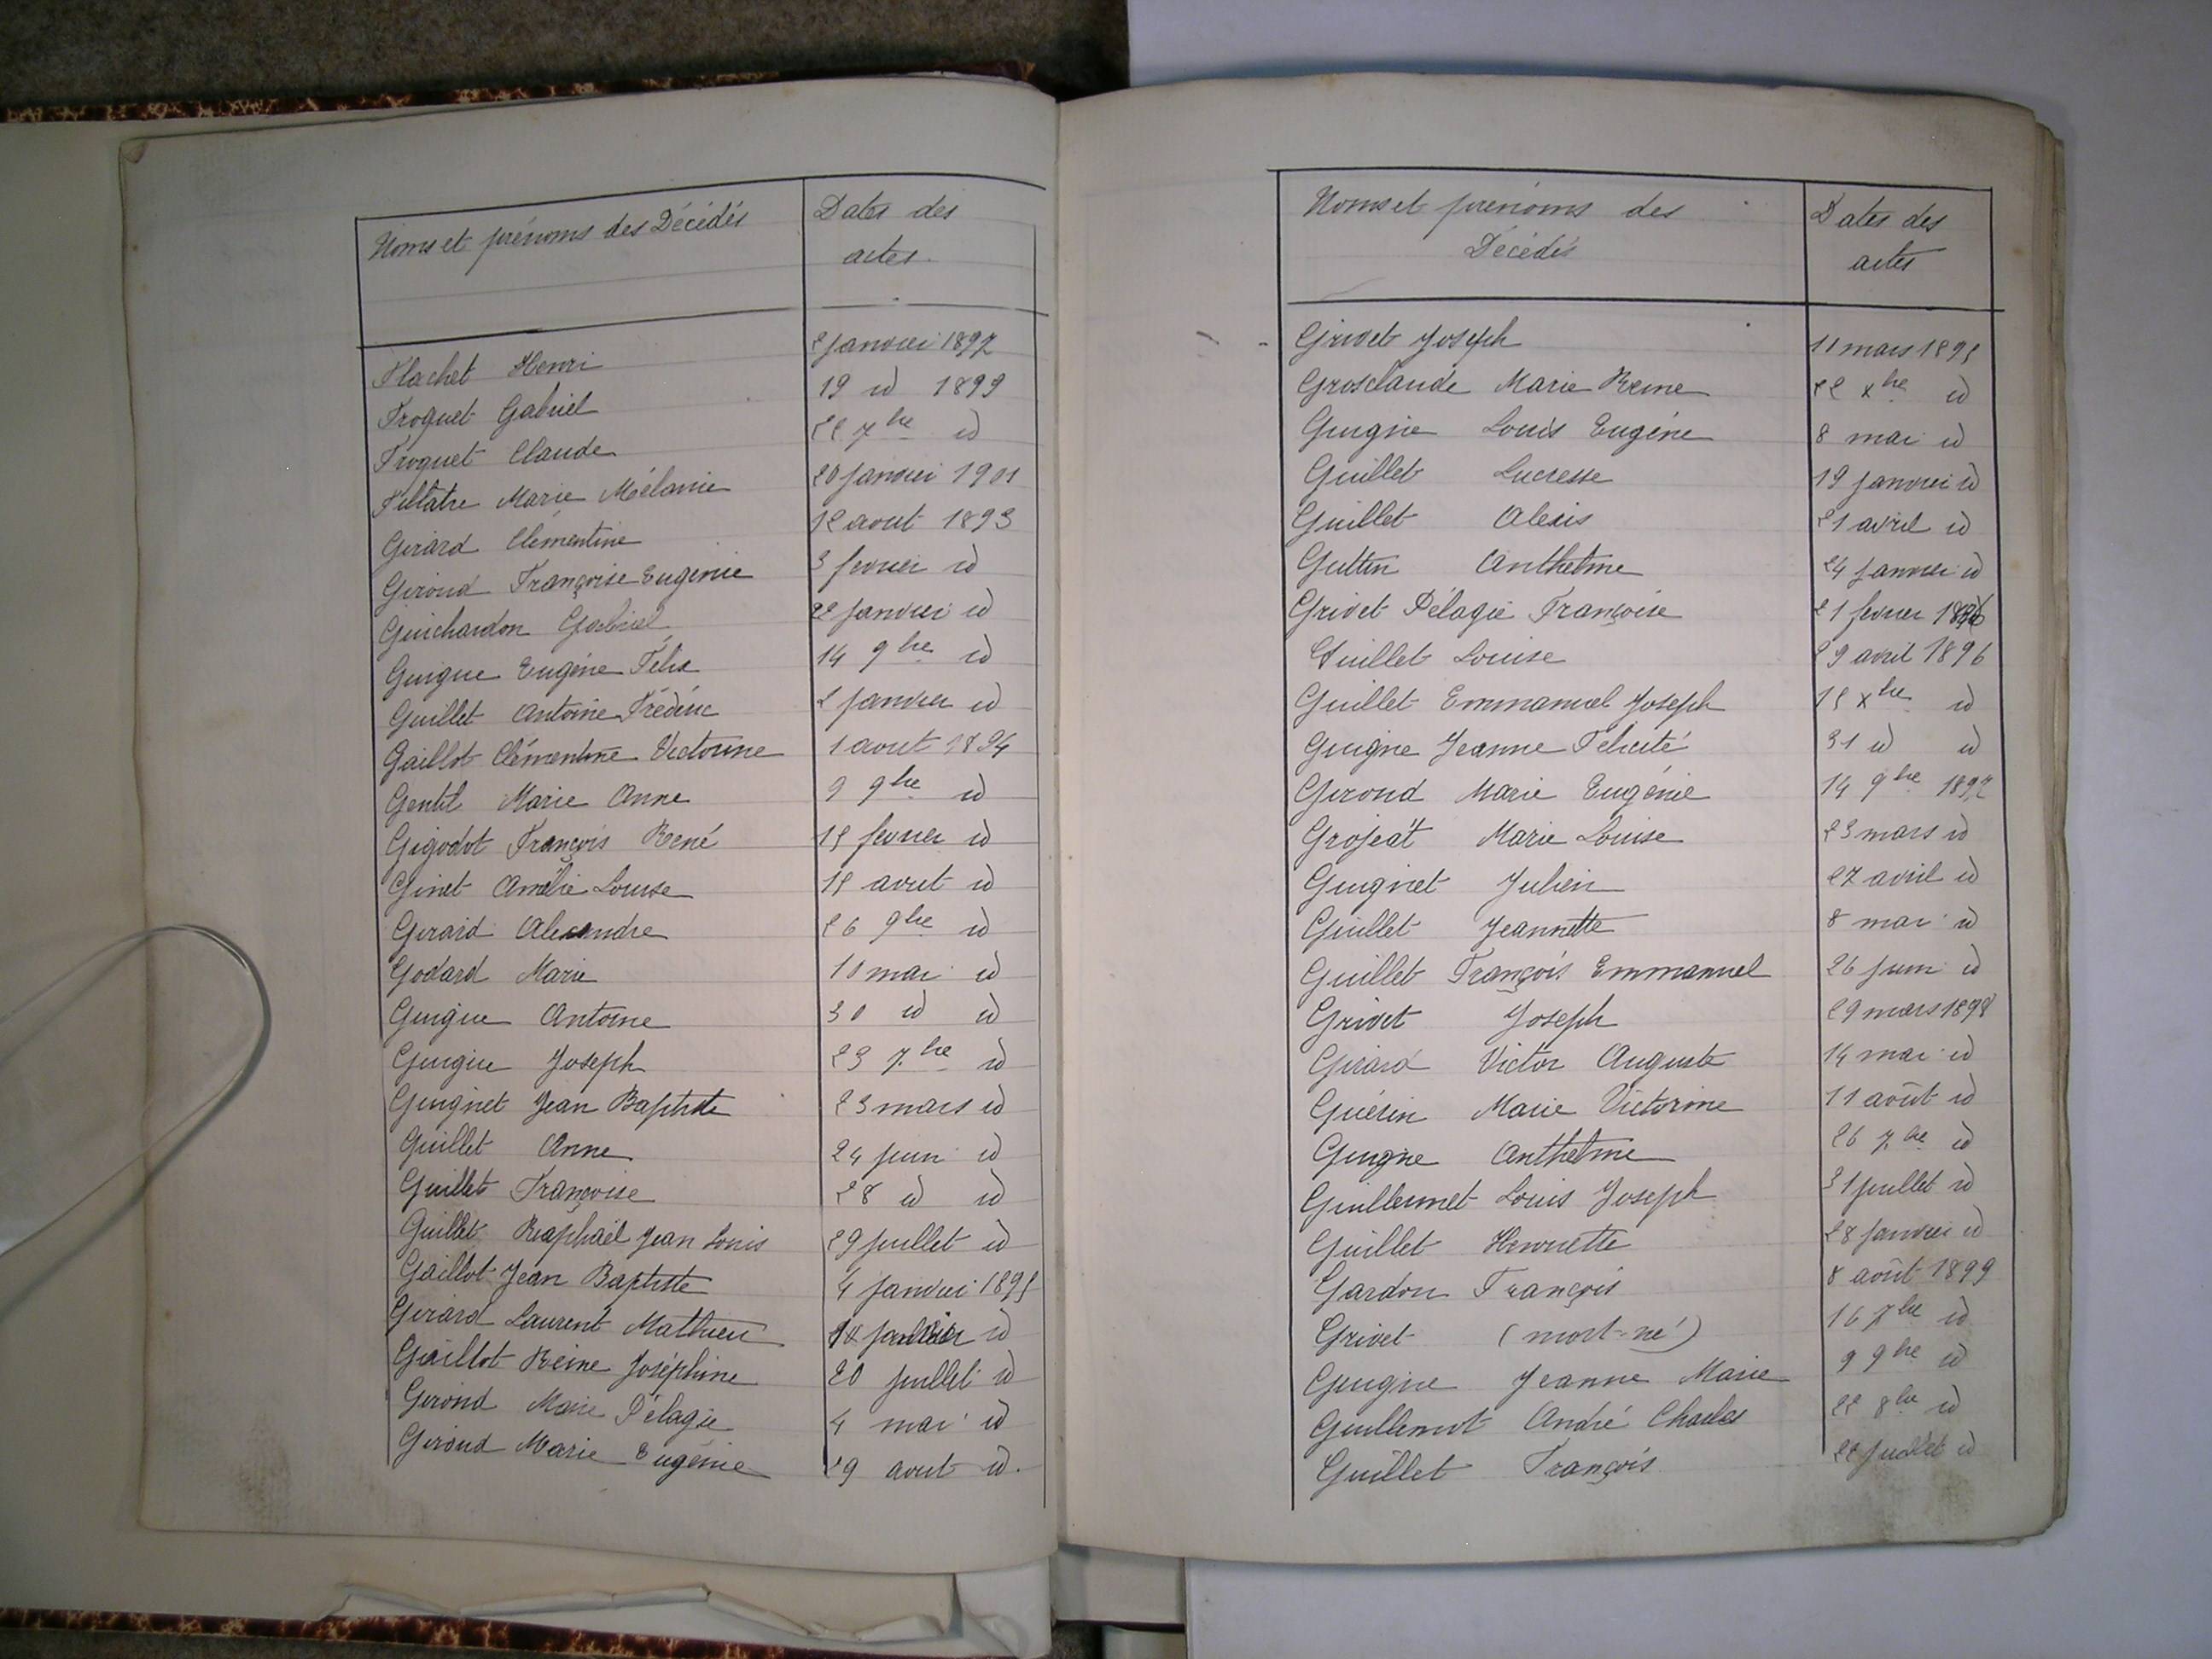 Noms et prénoms des Décédés
Dates des
actes.
Flachet Henri 2 janvier 1897
Froquet Gabriel 19 id 1899
Froquet Claude 22 7bre id
Fillatre Marie Mélanie 20 janvier 1901
Girard Clémentine 12 aout 1893
Girond Françoise Eugénie 3 fevrier id
Guichardon Gabriel 22 janvier id
Guigue Eugéne Félix 14 9bre id
Guillet Antoine Frédéric 2 janvier id
Gaillot Clémentine Victorine 1 aout 1894
Gentil Marie Anne 9 9bre id
Gigodot François René 15 fevrier id
Ginet Amélie Louise 15 avril id
Girard Alexandre 26 9bre id
Godard Marie 10 mai id
Guigue Antoine 30 id id
Guigue Joseph 23 7bre id
Guignet Jean Baptiste 23 mars id
Guillet Anne 24 juin id
Guillet Françoise 28 id id
Guillet Raphaël Jean Louis 29 juillet id
Gaillot Jean Baptiste 4 janvier 1895
Girard Laurent Mathieu janvier id
Gaillot Reine Joséphine 20 juillet id
Girond Marie Pélagie 4 mai id
Girond Marie Eugénie 29 aout id.
Noms et prénoms des
Décédés
Dates des
actes
Grivet Joseph 11 mars 1895
Grosclaude Marie Reine 22 xbre id
Guigue Louis Eugéne 8 mai id
Guillet Lucresse 19 janvier id
Guillet Alexis 21 avril id
Guttin Anthelme 24 janvier id
Grivet Pélagie Françoise 21 fevrier 1896
Guillet Louise 29 avril 1896
Guillet Emmanuel Joseph 15 xbre id
Guigue Jeanne Félicité 31 id id
Girond Marie Eugénie 14 9bre 1897
Grojeat Marie Louise 23 mars id
Guignet Julien 27 avril id
Guillet Jeannette 8 mai id
Guillet François Emmanuel 26 juin id
Grivet Joseph 29 mars 1898
Girard Victor Auguste 14 mai id
Guérin Marie Victorine 11 août id
Guigue Anthelme 26 7bre id
Guillermet Louis Joseph 31 juillet id
Guillet Henriette 28 janvier id
Gardon François 8 août 1899
Grivet (mort-né) 16 7bre id
Guigue Jeanne Marie 9 9bre id
Guillemot André Charles 22 8bre id
Guillet François 22 juillet id